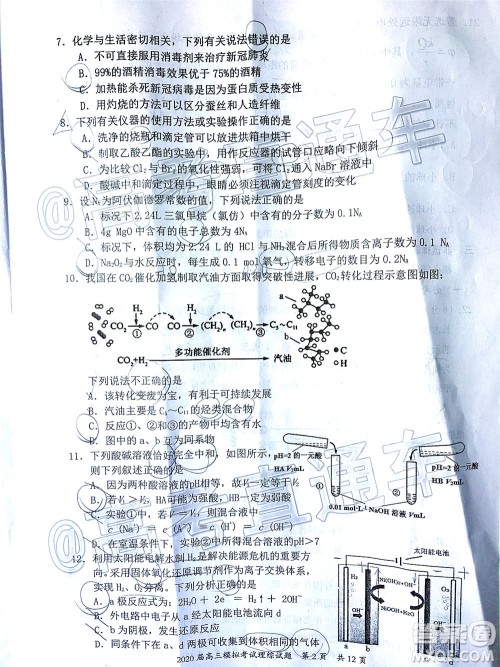 7. 化学与生活密切相关，下列有关说法错误的是
A. 不可直接服用消毒剂来治疗新冠肺炎
B. 99%的酒精消毒效果优于 75%的酒精
C. 加热能杀死新冠病毒是因为蛋白质受热变性
D. 用灼烧的方法可以区分蚕丝和人造纤维
8. 下列有关仪器的使用或操作正确的是
A. 洗净的烧瓶和滴定管可以放进烘箱中烘干
B. 制取乙酸乙酯的实验中，用作反应器的试管口应略向下倾斜
C. 为比较 Cl₂与 Br₂的氧化性强弱，可将 Cl₂通入 NaBr 溶液中
D. 酸碱中和滴定过程中，眼睛必须注视滴定管刻度的变化
9. 设 Nᴀ为阿伏伽德罗常数的值，下列说法正确的是
A. 标况下 2.24L 三氯甲烷（氯仿）中含有的分子数为 0.1Nᴀ
B. 4g MgO 中含有的分子数为 0.1Nᴀ
C. 标况下，体积均为 2.24 L 的 HCl 与 NH₃混合后所得物质含离子数为 0.1 Nᴀ
D. Na₂O₂与水反应时，每生成 0.1 mol 氧气，转移电子的数目为 0.2Nᴀ
10. 我国在 CO₂催化加氢制取汽油方面取得突破性进展，CO₂转化过程示意图如图：
H₂ H₂ a
CO₂ ① CO CO ② (CH₂)ₙ (CH₂)ₙ ③ C₅~C₁₁
b
多功能催化剂
CO₂+H₂ 汽油
C
H
下列说法不正确的是
A. 该转化变废为宝，有利于可持续发展
B. 汽油主要是 C₅~C₁₁的烃类混合物
C. 反应①、②和③的产物中均含有水
D. 图中的 a、b 互为同系物
11. 下列酸碱溶液恰好完全中和，如图所示，
则下列叙述正确的是
A. 因为两种酸溶液的 pH 相等，故V₁一定等于V₂
B. 若V₁>V₂，HA 可能为强酸，HB 可能为弱酸
C. 实验①中，若V=V₁，则一定存在
c（Na⁺）= c（A⁻）
D. 在室温条件下，实验②中溶液的 pH＞7
pH=2 的一元酸
HA V₁mL
pH=2 的一元酸
HB V₂mL
① ②
0.01 mol·L⁻¹NaOH 溶液 VmL
方向。采用固体氧化还原调节剂作为离子交换体系，
实现 H₂、O₂分离。下列分析正确的是
A. a 极上的反应式为：2H₂O + 2e⁻ = H₂↑ + 2OH⁻
B. 外电路中电子从 a 经太阳能电池流向 d
太阳能电池
H₂ O₂
OH⁻
2020 届高三模拟考试理综试题 第 2 页 共 12 页